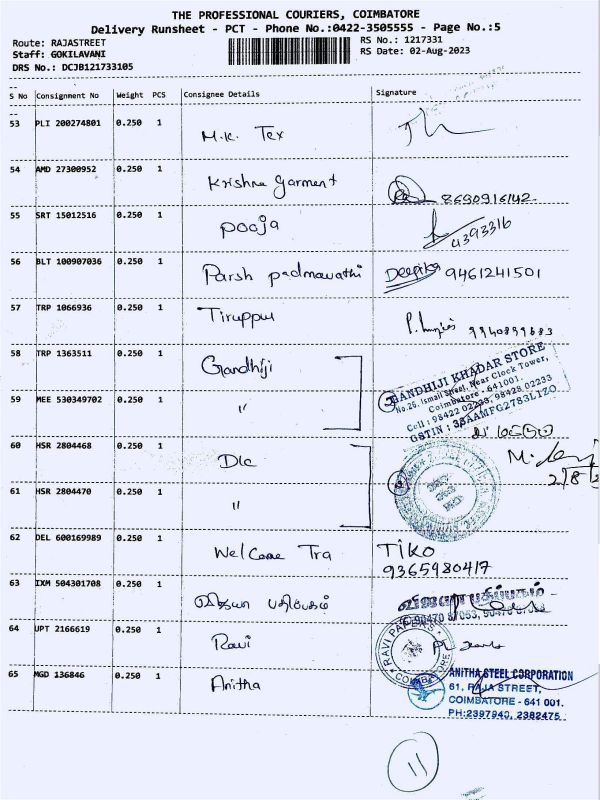 THE PROFESSIONAL COURIERS, COIMBATORE
Delivery Runsheet - PCT - Phone No.:0422-3505555 - Page No.:5
Route: RAJASTREET
RS No.: 1217331
Staff: GOKILAVANI
RS Date: 02-Aug-2023
DRS No.: DCJB121733105
S No Consignment No Weight PCS Consignee Details Signature
53 PLI 200274801 0.250 1 M.K. Tex
54 AMD 27300952 0.250 1 Krishna Garment 8690916142
55 SRT 15012516 0.250 1 Pooja 4393316
56 BLT 100907036 0.250 1 Parsh padmavathi Deepika 9461241501
57 TRP 1066936 0.250 1 Tiruppur 9940899683
58 TRP 1363511 0.250 1 Gandhiji
GANDHIJI KHADAR STORE
No.26, Ismail Street, Near Clock Tower,
Coimbatore - 641001.
Cell : 98422 02233, 98428 02233
GSTIN : 33AAMFG2783L1ZO
59 MEE 530349702 0.250 1 "
60 HSR 2804468 0.250 1 Dlc
61 HSR 2804470 0.250 1 "
62 DEL 600169989 0.250 1 Welcome Tra TIKO
9365980417
63 IXM 504301708 0.250 1 விஜயா பதிப்பகம் விஜயா பதிப்பகம்
90470 87053
64 UPT 2166619 0.250 1 Ravi
RAVI PAPERS
COIMBATORE
65 MGD 136846 0.250 1 Anitha
ANITHA STEEL CORPORATION
61, RAJA STREET,
COIMBATORE - 641 001.
PH:2397940, 2382475
11